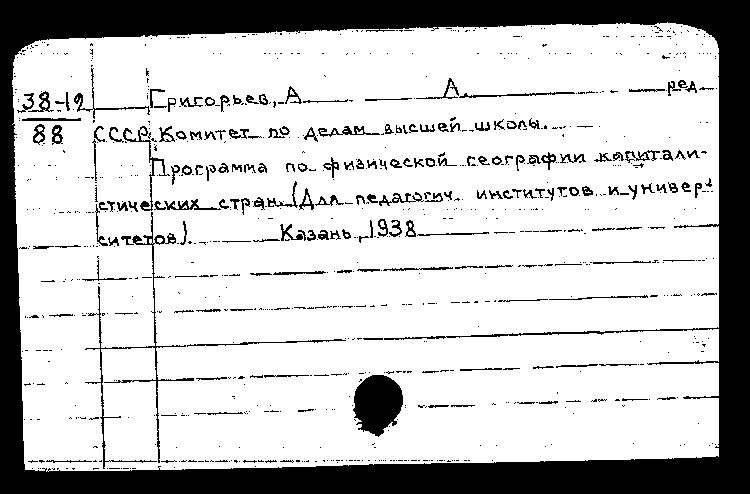 38-12 Григорьев, А. А. ред.
88 СССР. Комитет по делам высшей школы.
Программа по физической географии капитали-
стических стран. (Для педагогич. институтов и универ-
ситетов). Казань, 1938